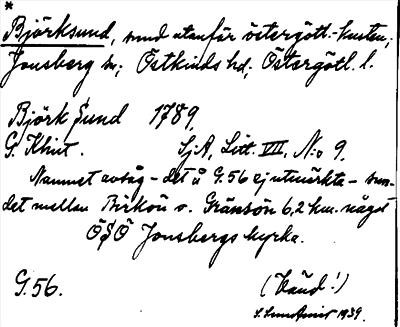 *
Björksund, sund utanför östergötl.-kusten;
Jonsberg sn; Östkinds hd; Östergötl. l.
Björk Sund 1789.
G. Klint. SjA, Litt. VII, N:o 9.
Namnet avsåg – det å G.56 ej utmärkta – sun-
det mellan Birkön o. Gränsön 6,2 km. något
ÖSÖ Jonsbergs kyrka.
G.56. (Vänd!)
1939.